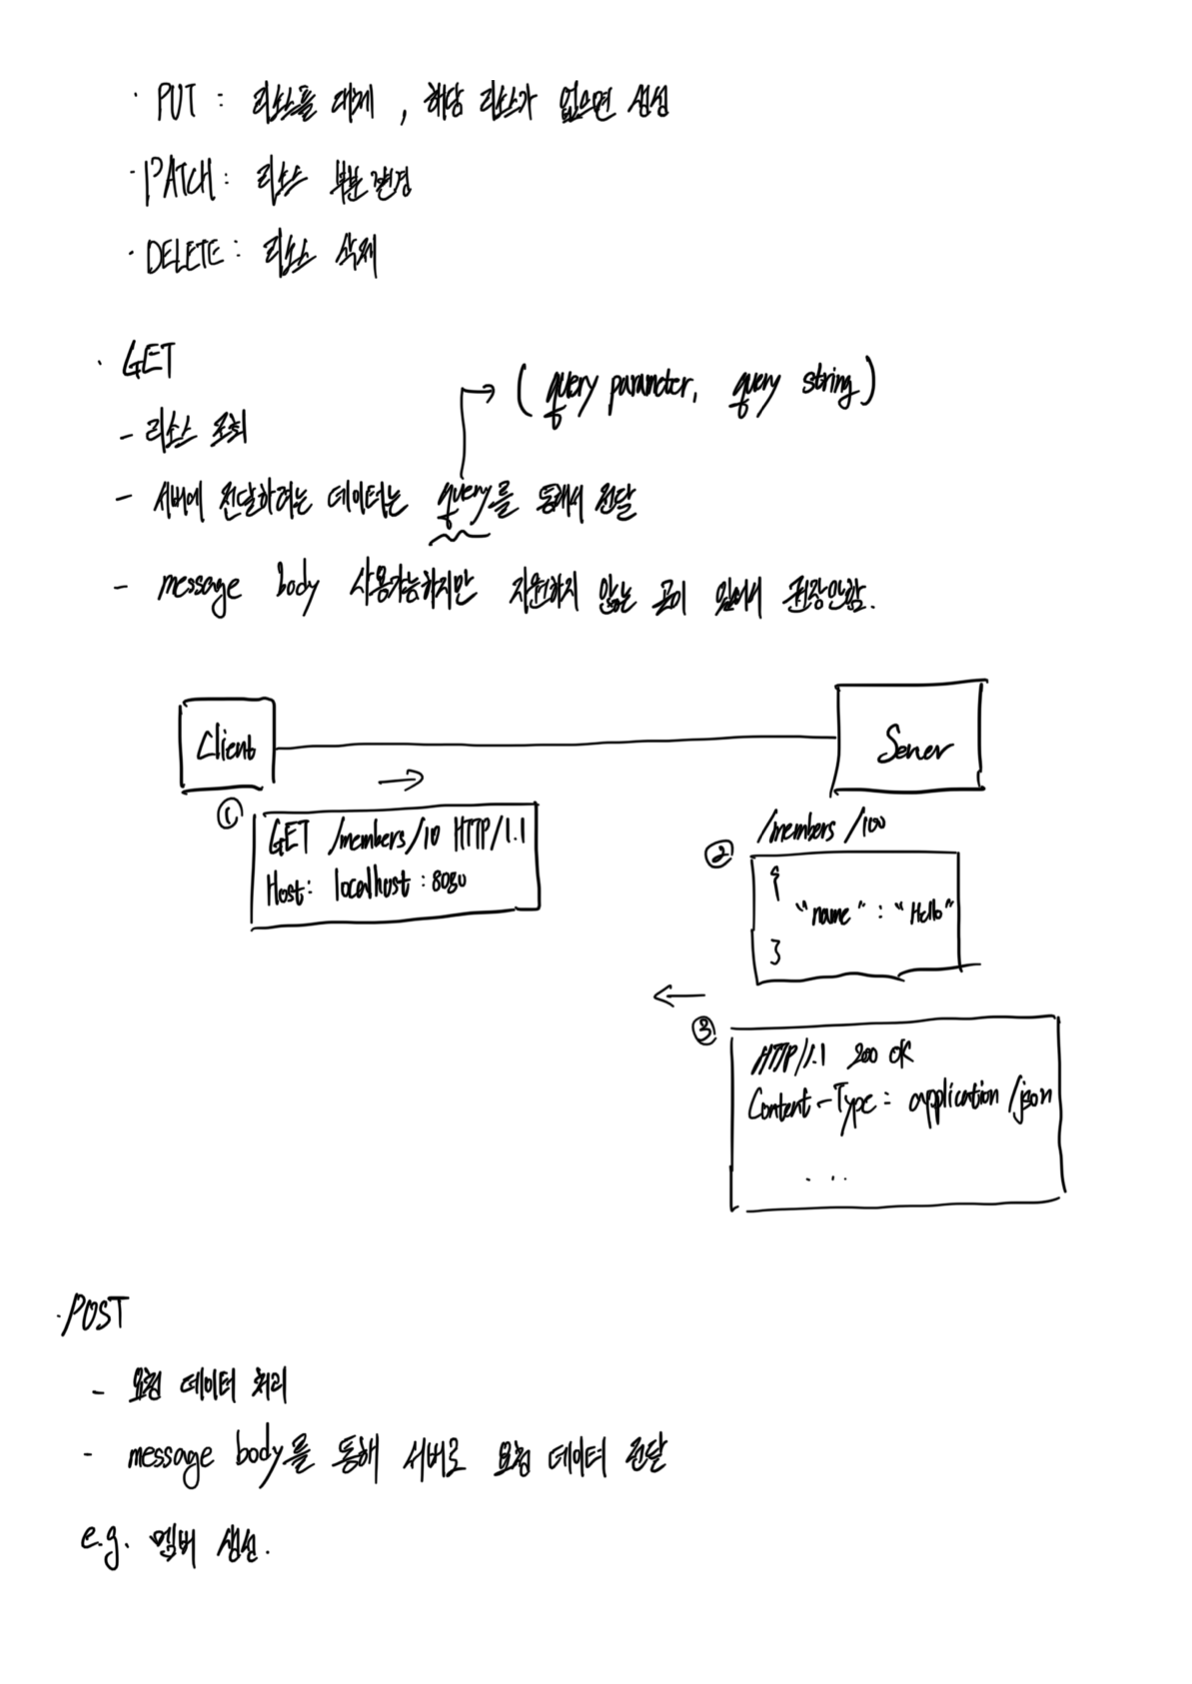 · PUT : 리소스를 대체 , 해당 리소스가 없으면 생성
· PATCH : 리소스 부분변경
· DELETE : 리소스 삭제
· GET
→ ( query parameter, query string )
- 리소스 조회
- 서버에 전달하려는 데이터는 query를 통해서 전달
- message body 사용가능하지만 지원하지 않는 곳이 있어서 권장안함.
Client
Server
①
GET /members/10 HTTP/1.1
Host: localhost : 8080
/members /100
②
{
"name" : "Hello"
}
③
HTTP/1.1 200 OK
Content-Type : application /json
...
· POST
- 요청 데이터 처리
- message body를 통해 서버로 요청 데이터 전달
e.g. 멤버 생성.